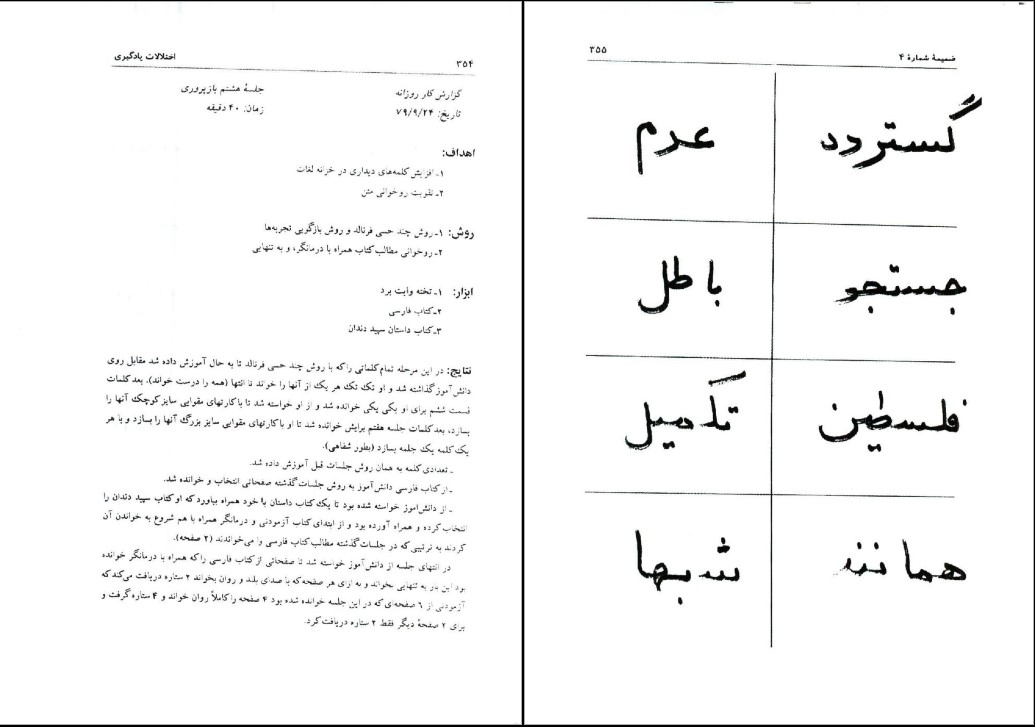 اختلالات یادگیری
۳۵۴
گزارش کار روزانه
جلسهٔ هشتم بازپروری
تاریخ: ۷۹/۹/۲۴
زمان: ۴۰ دقیقه
اهداف:
۱ـ افزایش کلمه‌های دیداری در خزانه لغات
۲ـ تقویت روخوانی متن
روش: ۱ـ روش چند حسی فرنالد و روش بازگویی تجربه‌ها
۲ـ روخوانی مطالب کتاب همراه با درمانگر، و به تنهایی
ابزار: ۱ـ تخته وایت برد
۲ـ کتاب فارسی
۳ـ کتاب داستان سپید دندان
نتایج: در این مرحله تمام کلماتی را که با روش چند حسی فرنالد تا به حال آموزش داده شد مقابل روی
دانش‌آموز گذاشته شد و او تک تک هر یک از آنها را خواند تا انتها (همه را درست خواند). بعد کلمات
قسمت ششم برای او یکی یکی خوانده شد و از او خواسته شد تا با کارتهای مقوایی سایز کوچک آنها را
بسازد، بعد کلمات جلسه هفتم برایش خوانده شد تا او با کارتهای مقوایی سایز بزرگ آنها را بسازد و با هر
یک کلمه یک جلمه بسازد (بطور شفاهی).
ـ تعدادی کلمه به همان روش جلسات قبل آموزش داده شد.
ـ از کتاب فارسی دانش‌آموز به روش جلسات گذشته صفحاتی انتخاب و خوانده شد.
ـ از دانش‌اموز خواسته شده بود تا یک کتاب داستان با خود همراه بیاورد که او کتاب سپید دندان را
انتخاب کرده و همراه آورده بود و از ابتدای کتاب آزمودنی و درمانگر همراه با هم شروع به خواندن آن
کردند به ترتیبی که در جلسات گذشته مطالب کتاب فارسی را می‌خواندند (۲ صفحه).
در انتهای جلسه از دانش‌آموز خواسته شد تا صفحاتی از کتاب فارسی را که همراه با درمانگر خوانده
بود این بار به تنهایی بخواند و به ازای هر صفحه که با صدای بلند و روان بخواند ۲ ستاره دریافت می‌کند که
آزمودنی از ۶ صفحه‌ای که در این جلسه خوانده شده بود ۴ صفحه را کاملاً روان خواند و ۴ ستاره گرفت و
برای ۲ صفحهٔ دیگر فقط ۲ ستاره دریافت کرد.
ضمیمهٔ شمارهٔ ۴
۳۵۵
گستردد
عدم
جستجو
باطل
فلسطین
تکمیل
همانند
شبها